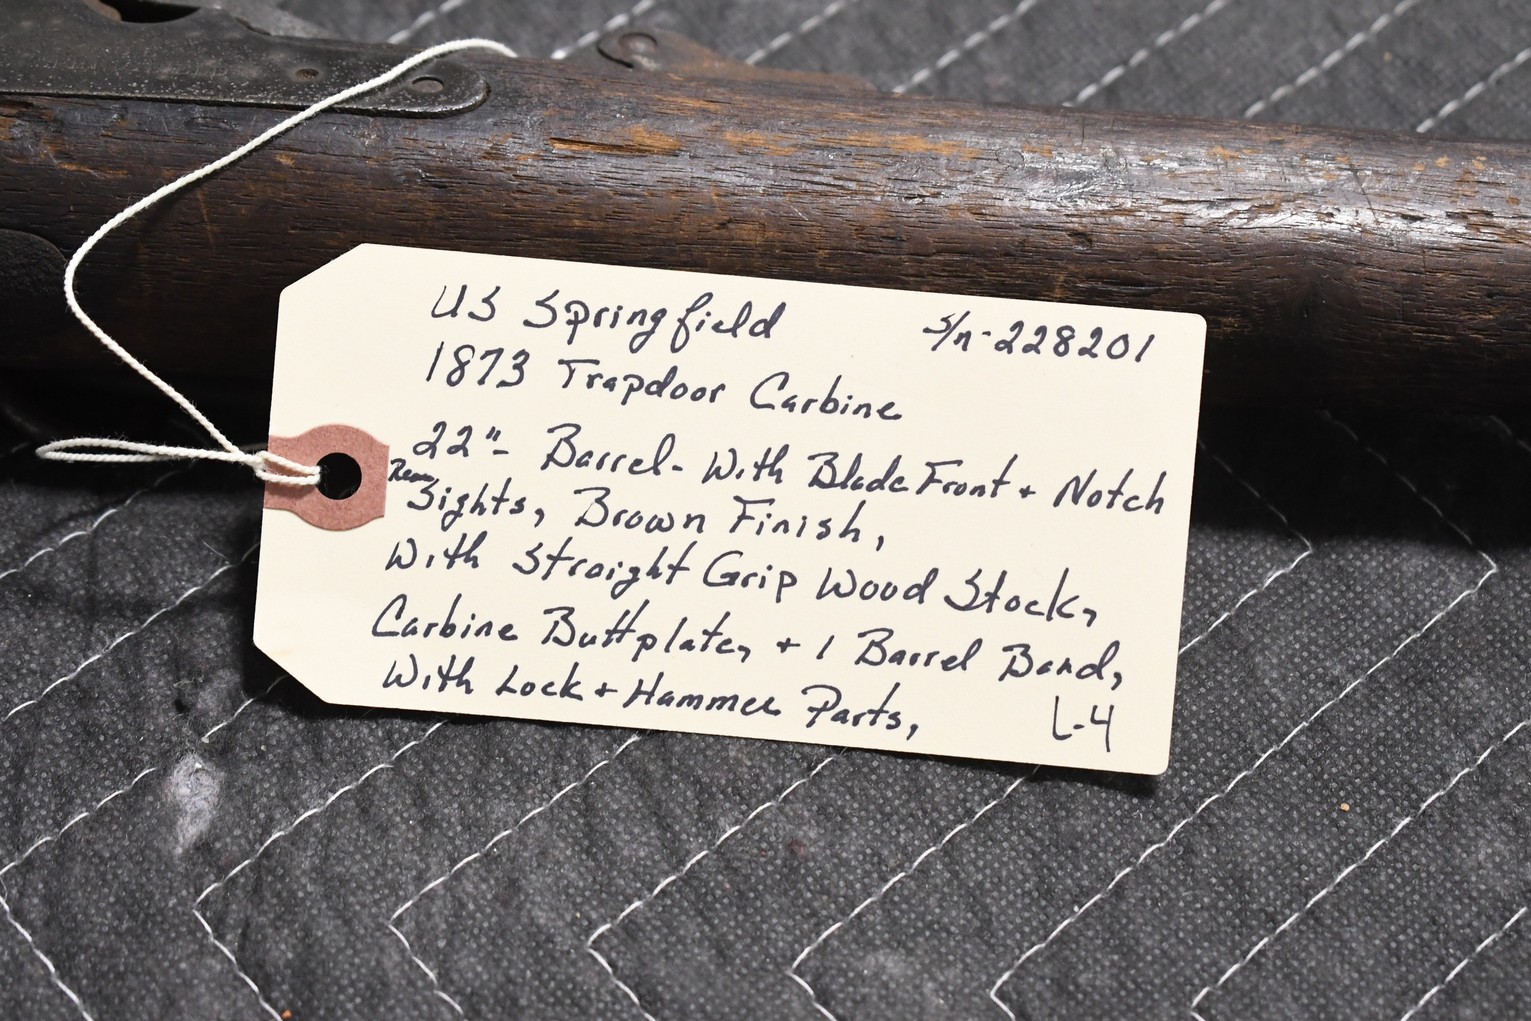 US Springfield S/n-228201
1873 Trapdoor Carbine
22"- Barrel- With Blade Front + Notch
Rear Sights, Brown Finish,
With Straight Grip Wood Stock,
Carbine Buttplate, + 1 Barrel Band,
With Lock + Hammer Parts, L-4